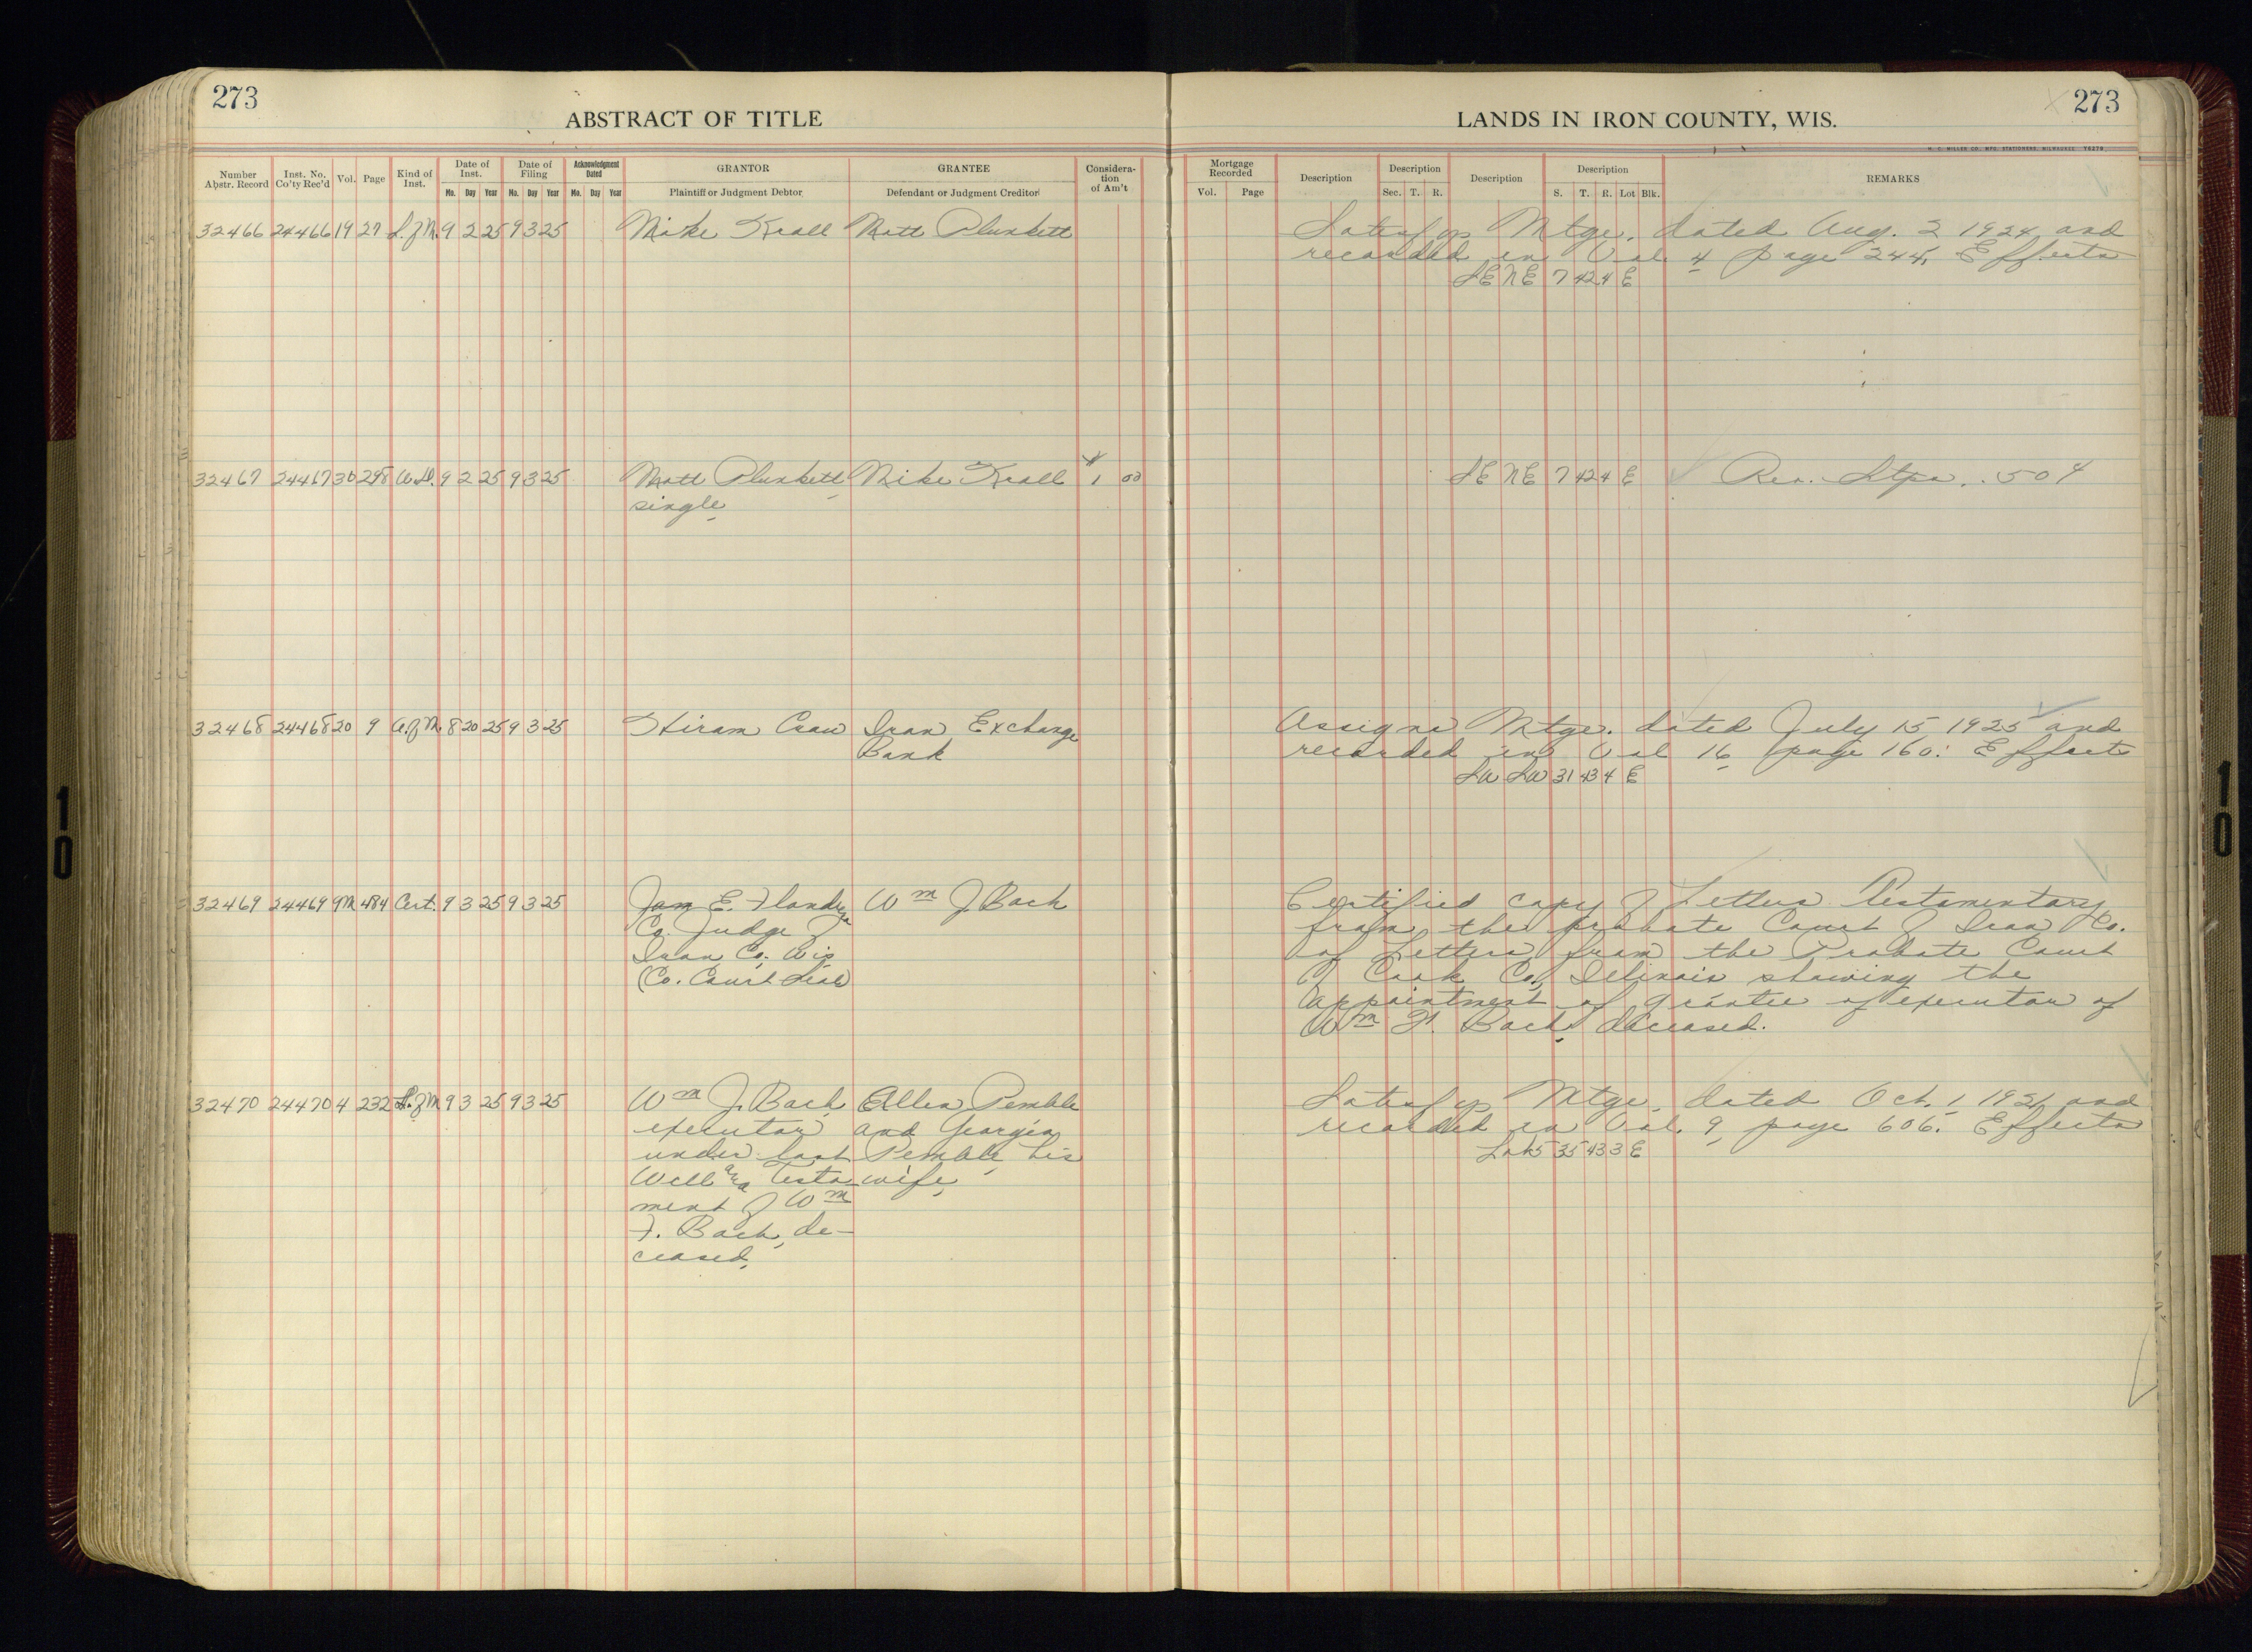 273
ABSTRACT OF TITLE
LANDS IN IRON COUNTY, WIS.
273
H. C. MILLER CO. MFG. STATIONERS, MILWAUKEE
Number Abstr. Record | Inst. No. Co'ty Rec'd | Vol. | Page | Kind of Inst. | Date of Inst. Mo. Day Year | Date of Filing Mo. Day Year | Acknowledgment Dated Mo. Day Year | GRANTOR Plaintiff or Judgment Debtor | GRANTEE Defendant or Judgment Creditor | Considera-tion of Am't | Mortgage Recorded Vol. Page | Description | Description Sec. T. R. | Description | Description S. T. R. Lot Blk. | REMARKS
32466 24466 19 27 S.of M. 9 2 25 9 3 25 Mike Krall Matt Plunkett Satisfys Mtge. dated Aug. 2 1924 and
recorded in Vol 4 page 244. Effects
SE NE 7 42 4 E
32467 24467 30 298 W.D. 9 2 25 9 3 25 Matt Plunkett Mike Krall 1 00 SE NE 7 42 4 E Rev. Stps. .50¢
single
32468 24468 20 9 A.of M. 8 20 25 9 3 25 Hiram Iron Exchange Assigns Mtge. dated July 15 1925 and
Bank recorded in Vol 16 page 160. Effects
SW SW 31 43 4 E
32469 24469 9M 484 Cert. 9 3 25 9 3 25 Jam E. Flandrena Wm J. Bach Certified copy of Letters Testamentary
Co. Judge of from the probate Court of Iron Co.
Iron Co. Wis of Letters from the Probate Court
(Co. Court Seal of Cook Co, Illinois showing the
appointment of grantee of executor of
Wm F. Bach, deceased.
32470 24470 4 232 S.of M 9 3 25 9 3 25 Wm J. Bach Allen Pemble Satisfys Mtge. dated Oct. 1 1921 and
executor and Georgia recorded in Vol. 9 page 606. Effects
under last Pemble his Lot 5 35 43 3 E
Will and Testa wife,
ment of Wm
F. Bach, de-
ceased.
10
10